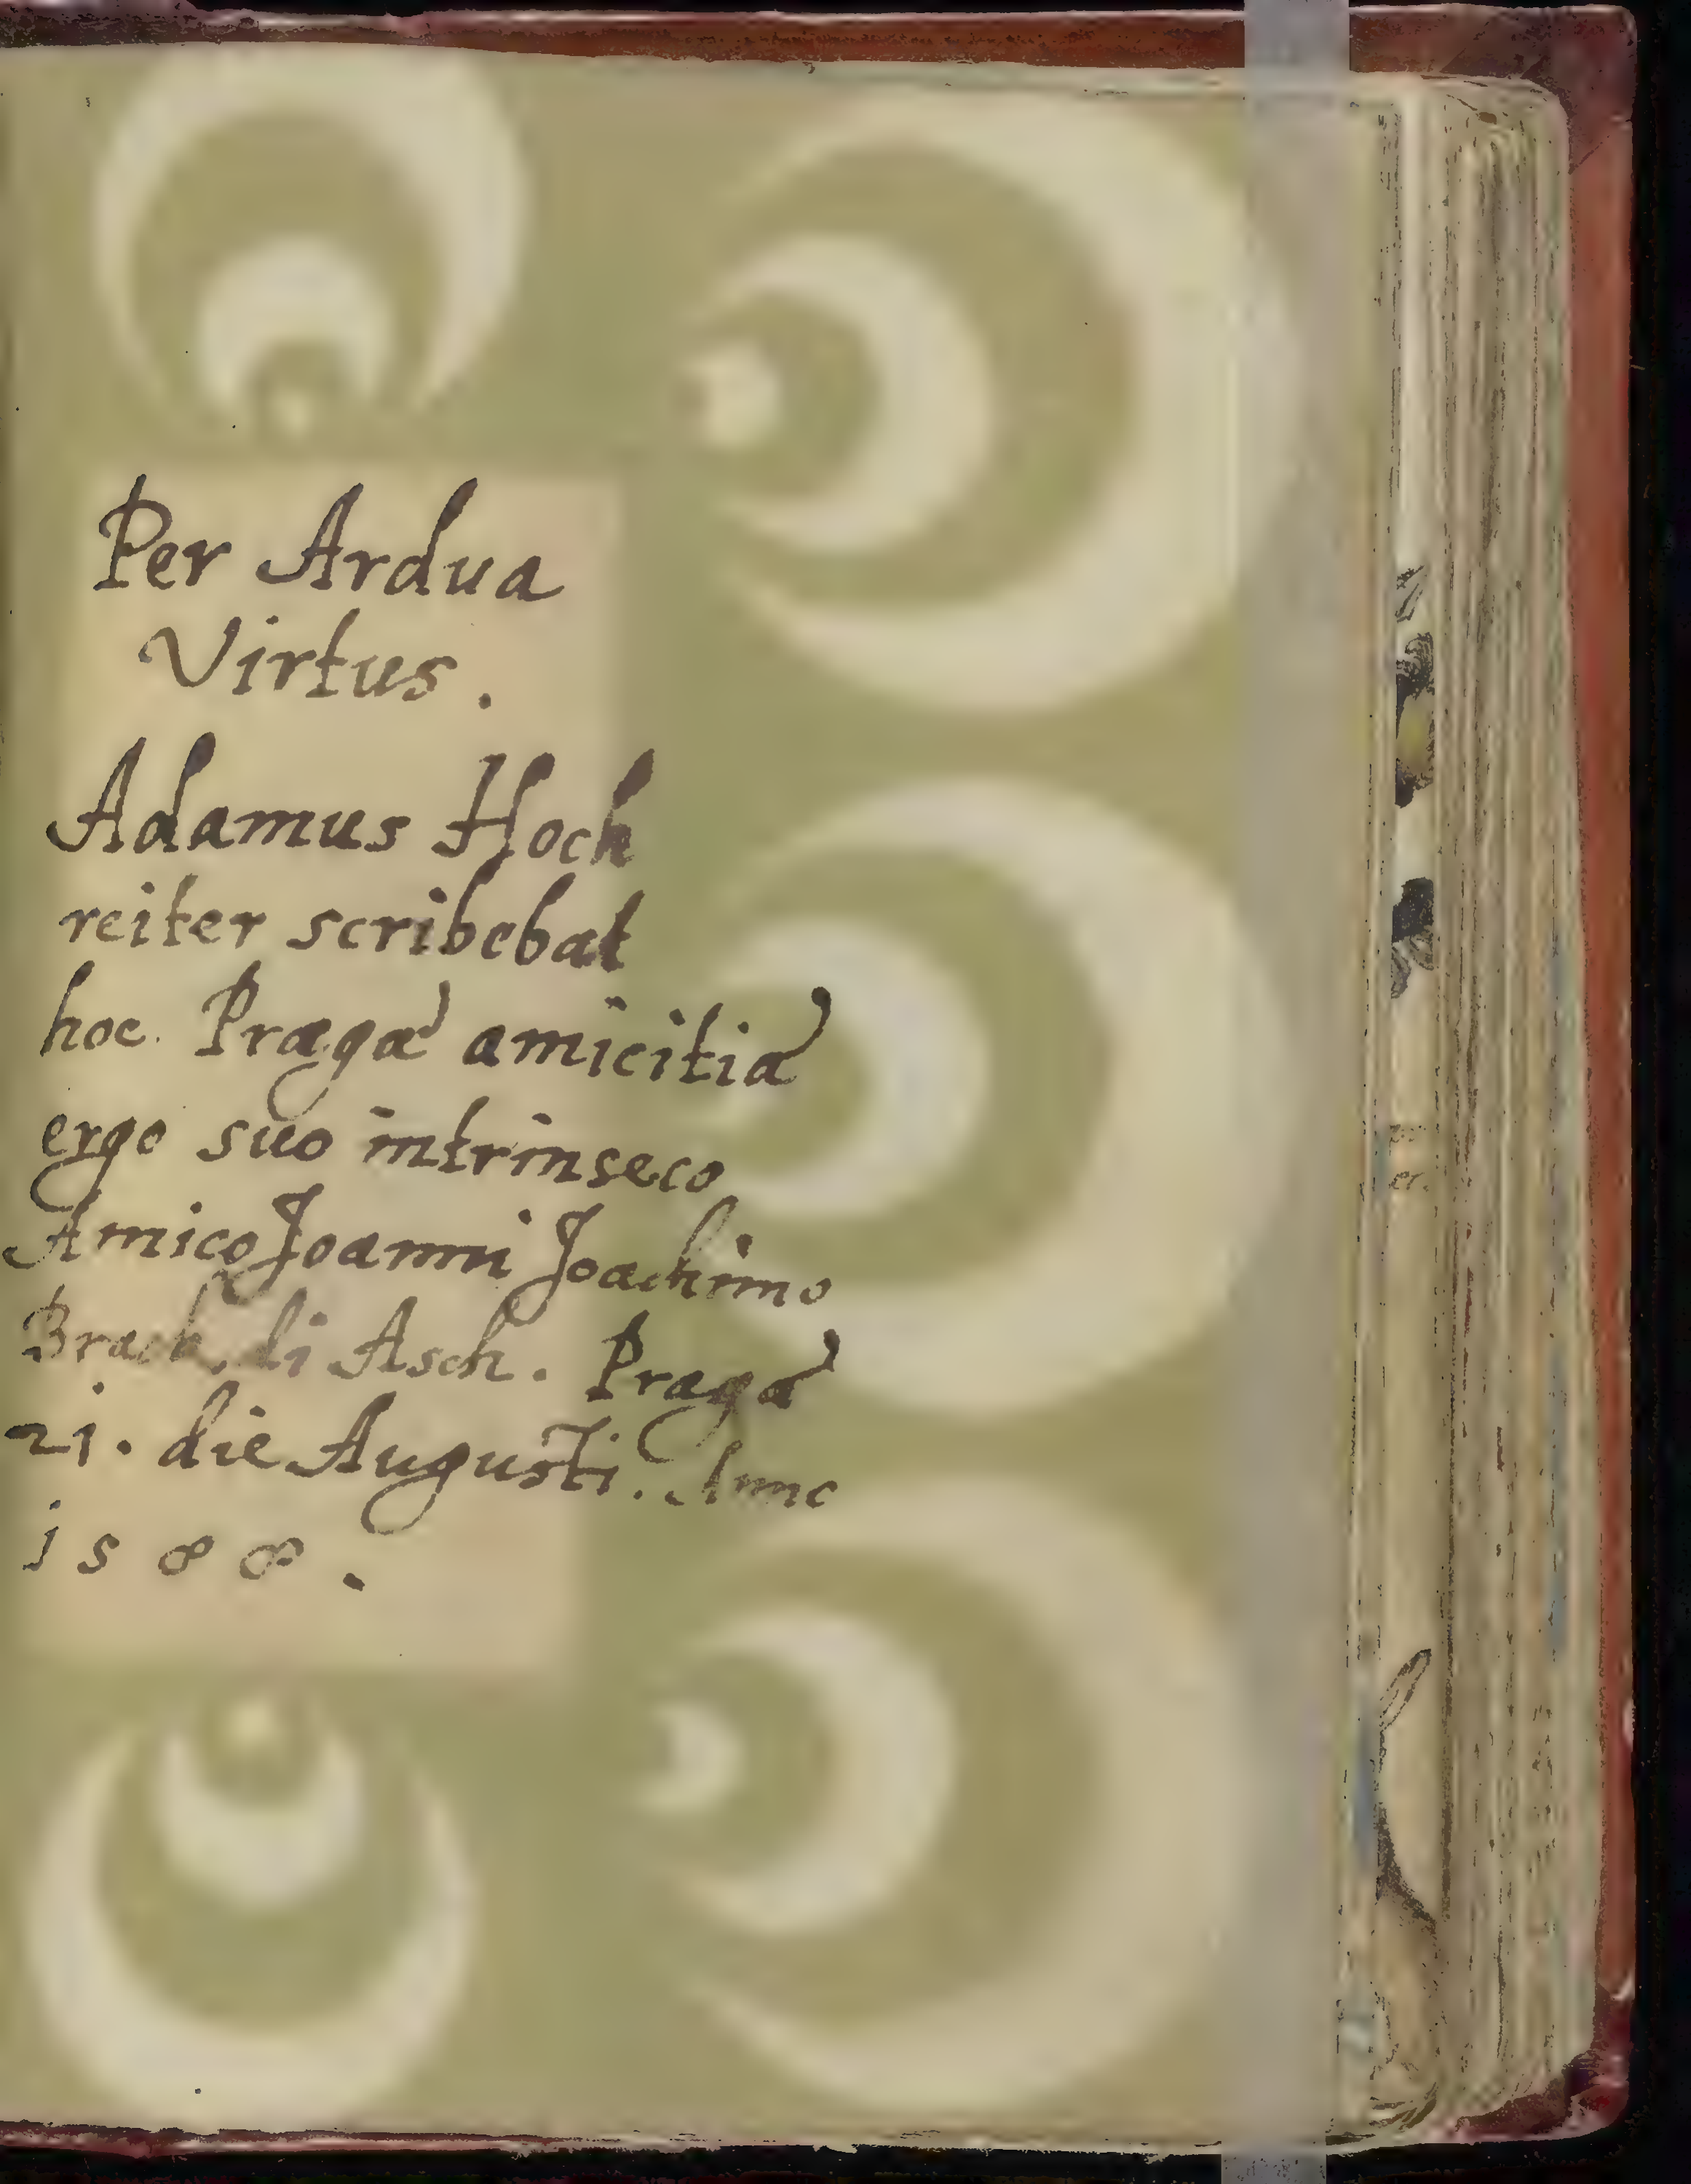 Per Ardua
Virtus.
Adamus Hoch
reiter scribebat
hoc. Pragæ amicitiæ
ergo suo intrinseco
Amico Joanni Joachimo
Asch. Pragæ
21. die Augusti. Anno
1588.